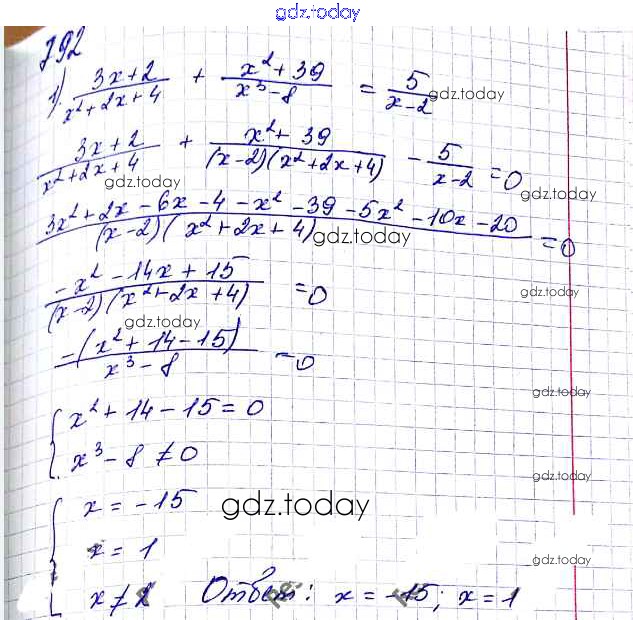 gdz.today
792
1) (3x+2)/(x²+2x+4) + (x²+39)/(x³-8) = 5/(x-2)
gdz.today
(3x+2)/(x²+2x+4) + (x²+39)/((x-2)(x²+2x+4)) - 5/(x-2) = 0
gdz.today
gdz.today
(3x²+2x-6x-4-x²-39-5x²-10x-20)/((x-2)(x²+2x+4)) = 0
gdz.today
(-x²-14x+15)/((x-2)(x²+2x+4)) = 0
gdz.today
gdz.today
-(x²+14-15)/(x³-8) = 0
{ x²+14-15=0
gdz.today
x³-8≠0
gdz.today
{ x=-15
gdz.today
x=1
gdz.today
x≠2 Ответ: x=-15; x=1